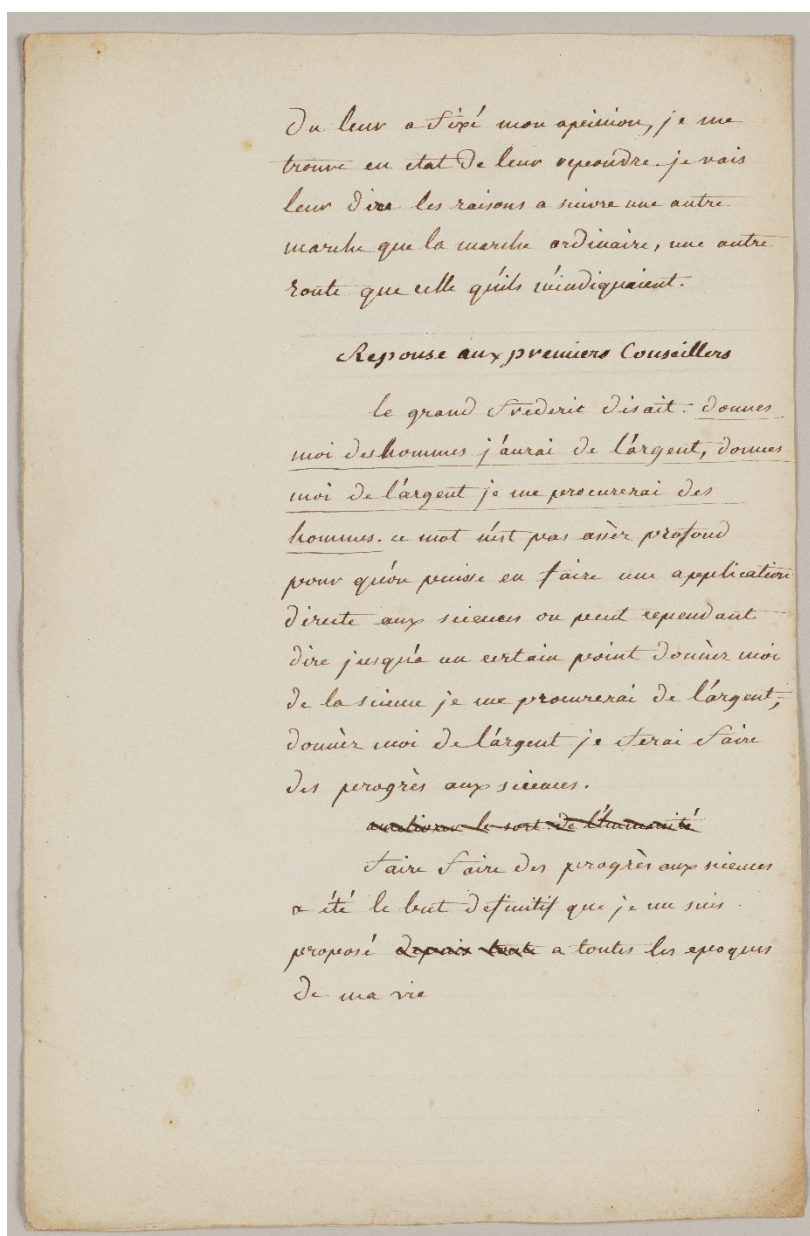 du leur a fixé mon opinion, je me
trouve en etat de leur repondre. je vais
leur dire les raisons a suivre une autre
marche que la marche ordinaire, une autre
route que celle qu'ils m'indiquaient.
Reponse aux premiers Conseillers
le grand Frederic disait: donnes
moi des hommes j'aurai de l'argent, donnes
moi de l'argent je me procurerai des
hommes. ce mot n'est pas assèz profond
pour qu'on puisse en faire une application
directe aux sciences on peut cependant
dire jusqu'a un certain point donnèz moi
de la science je me procurerai de l'argent;
donnèz moi de l'argent je ferai faire
des progrès aux sciences.
ameliorer le sort de l'humanité
faire faire des progrès aux sciences
a été le but definitif que je me suis
proposé depuis toute a toutes les epoques
de ma vie